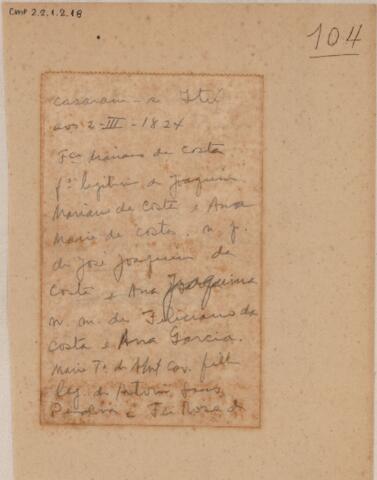 CMP 2.2.1.2.18
104
casaram-se Itú
aos 2-III-1824
Fco Mariano da Costa
fº legitimo de Joaquim
Mariano da Costa e Ana
Maria da Costa. n. p.
de José Joaquim da
Costa e Ana Joaquina
n. m. de Feliciano da
Costa e Ana Garcia.
Maria Tª de Cav. filh
leg. de Antonio
Pereira e Rosa de